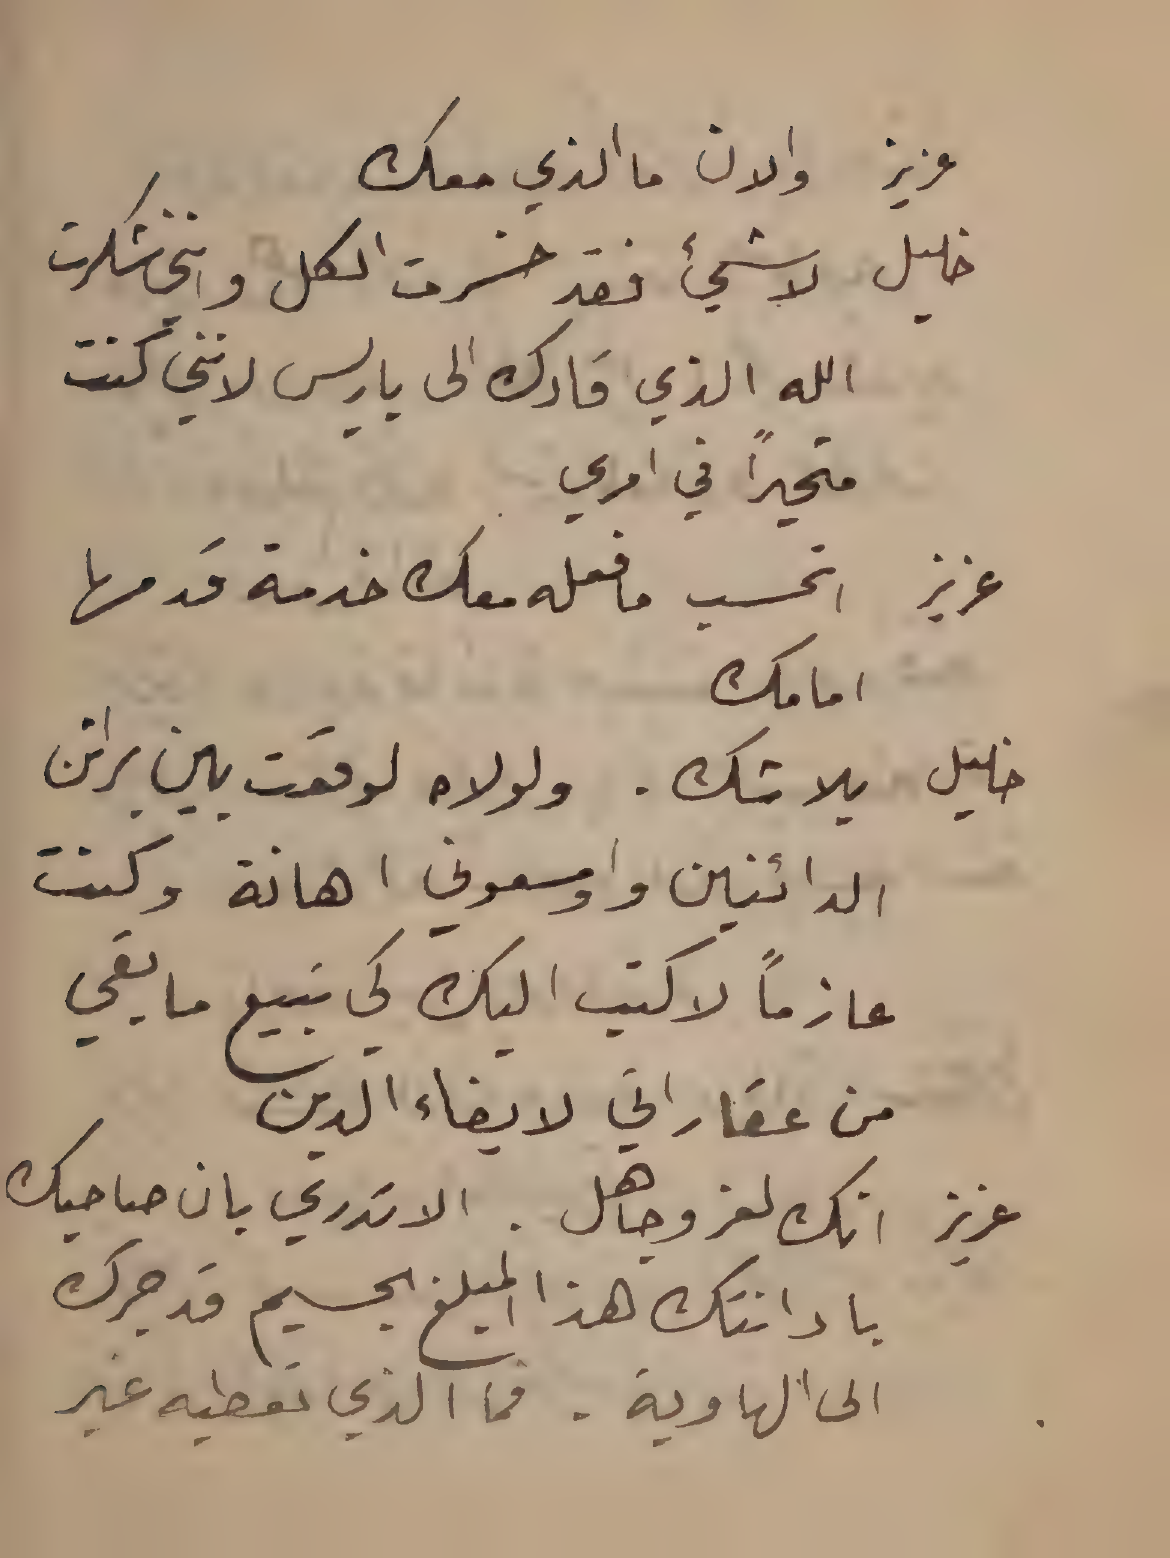 عزيز والان ما الذي معك
خليل لاشيئ فقد خسرت الكل وانني شكرت
الله الذي قادك الى باريس لانني كنت
متحيراً في امري
عزيز اتحسب ما فعله معك خدمة قدمها
امامك
خليل بلا شك . ولولاه لوقعت بين براثن
الدائنين واوسعوني اهانة وكنت
عازماً لاكتب اليك كي تبيع ما بقي
من عقاراتي لايفاء الدين
عزيز انك لغر وجاهل . الا تدري بان صاحبك
بادانتك هذا المبلغ الجسيم قد جرك
الى الهاوية . فما الذي تعطيه غير